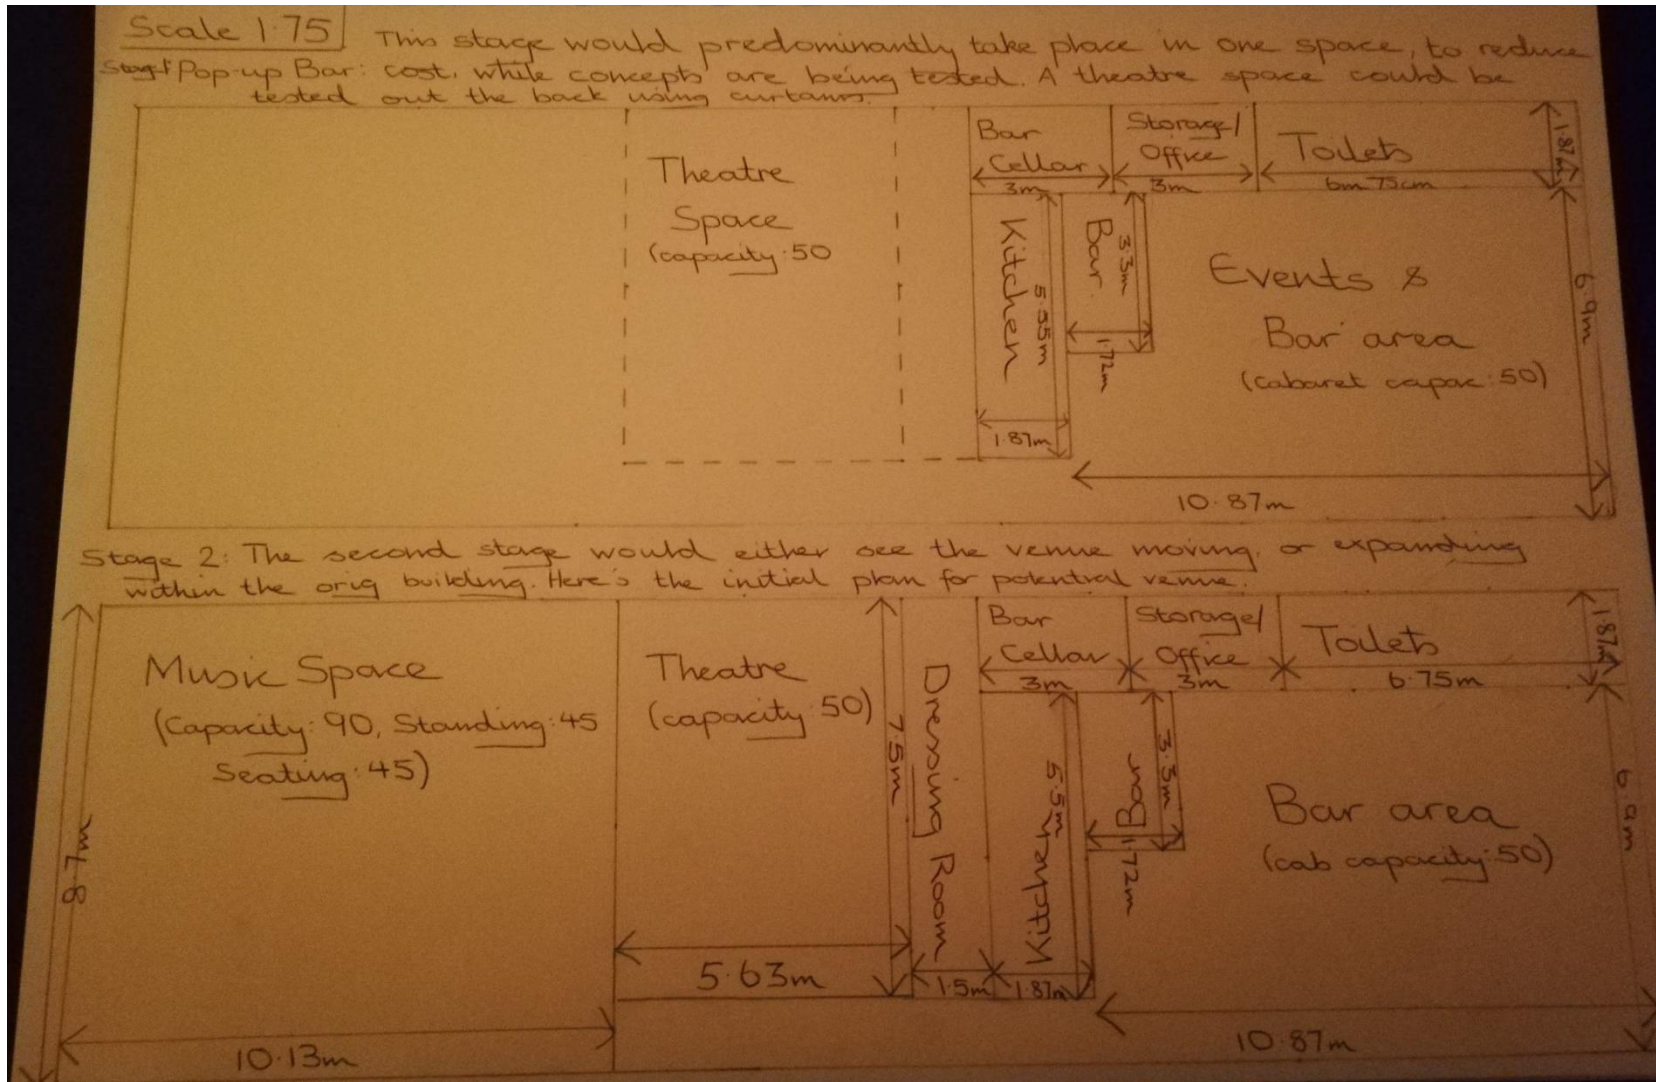 Scale 1:75
This stage would predominantly take place in one space, to reduce
Stage 1 Pop-up Bar: cost, while concepts are being tested. A theatre space could be
tested out the back using curtains.
Theatre
Space
(capacity: 50
Bar
Cellar
3m
Storage/
Office
3m
Toilets
6m 75cm
1.87m
Kitchen
5.55m
1.87m
Bar
3.3m
1.72m
Events &
Bar area
(cabaret capac: 50)
6.9m
10.87m
Stage 2: The second stage would either see the venue moving, or expanding
within the orig building. Here's the initial plan for potential venue.
Music Space
(Capacity: 90, Standing: 45
Seating: 45)
8.7m
10.13m
Theatre
(capacity 50)
7.5m
5.63m
Dressing Room
1.5m
Bar
Cellar
3m
Storage/
Office
3m
Toilets
6.75m
1.87m
Kitchen
5.5m
1.87m
Bar
3.3m
1.72m
Bar area
(cab capacity: 50)
6.9m
10.87m